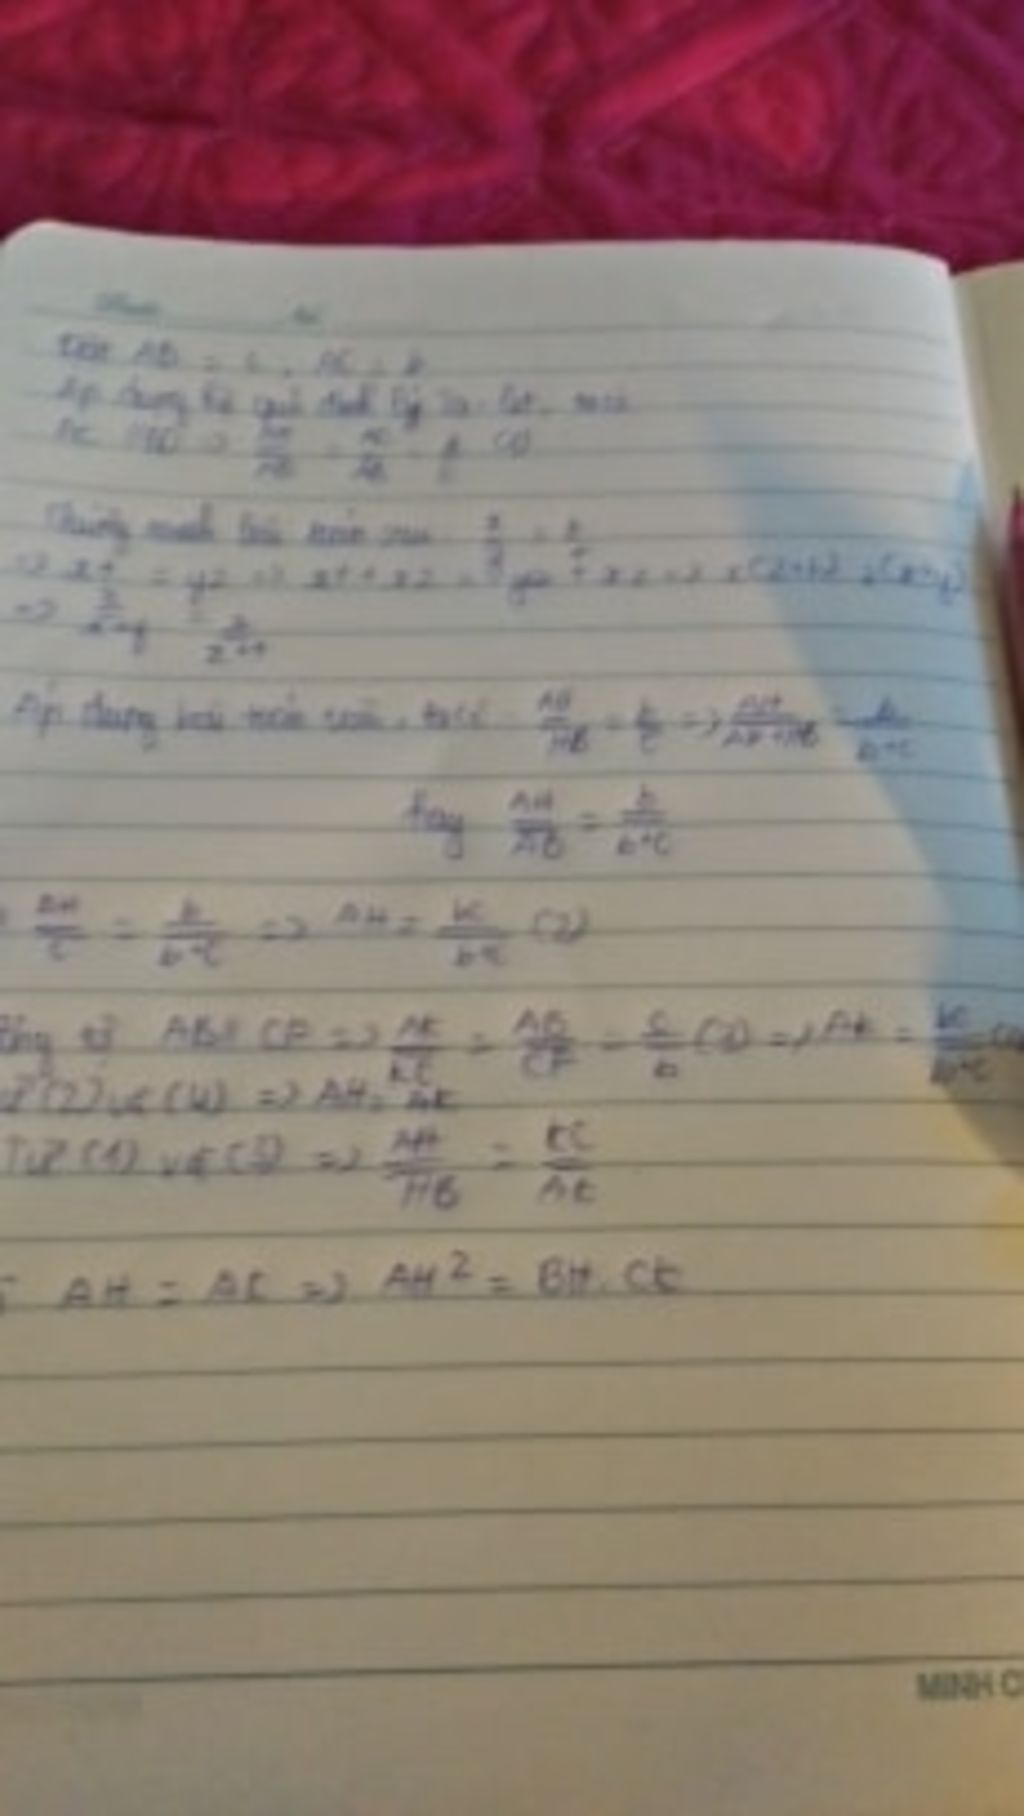 Đặt AB = c, AC = b
Áp dụng hệ quả định lý Ta-lét, ta có
AC // BD => AH/HB = AC/BD = b/c (1)
Chứng minh bài toán sau x/y = z/t
=> xt = yz => xt + xz = yz + xz => x(z+t) = z(x+y)
=> x/x+y = z/z+t
Áp dụng bài toán trên, ta có AH/HB = b/c => AH/AH+HB = b/b+c
hay AH/AB = b/b+c
AH/c = b/b+c => AH = bc/b+c (2)
AB // CF => AK/KC = AB/CF = c/b (3) => AK = bc/b+c
(2) và (4) => AH = AK
Từ (1) và (3) => AH/HB = KC/AK
AH = AK => AH² = BH.CK
MINH C